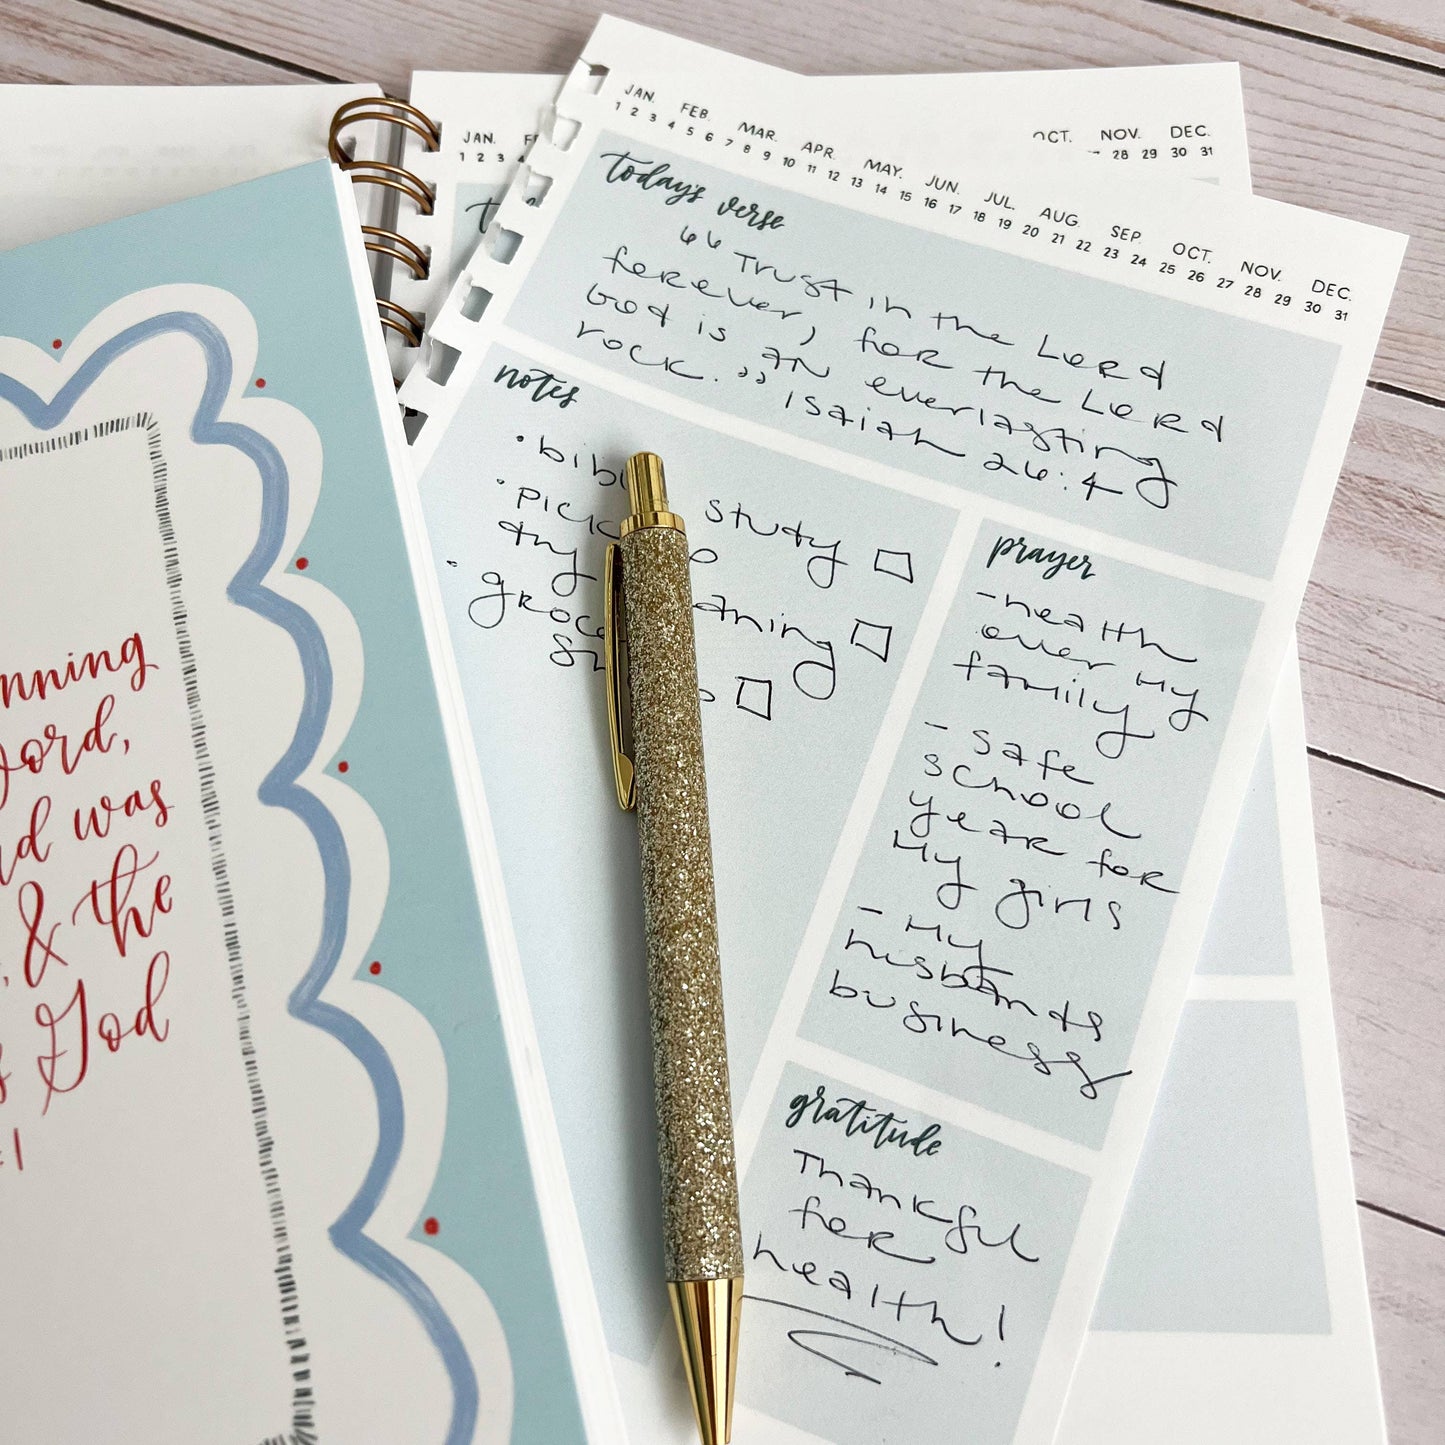 JAN. FEB. MAR. APR. MAY. JUN. JUL. AUG. SEP. OCT. NOV. DEC.
1 2 3 4 5 6 7 8 9 10 11 12 13 14 15 16 17 18 19 20 21 22 23 24 25 26 27 28 29 30 31
today's verse
“Trust in the Lord
forever, for the Lord
God is an everlasting
rock.” Isaiah 26:4
notes
• bib study
• pick
dry aning
• groc
prayer
- health
over my
family
- safe
school
year for
my girls
- my
husbands
business
gratitude
Thankful
for
health!
JAN.
1 2 3
OCT. NOV. DEC.
28 29 30 31
nning
ord,
d was
& the
God
:1